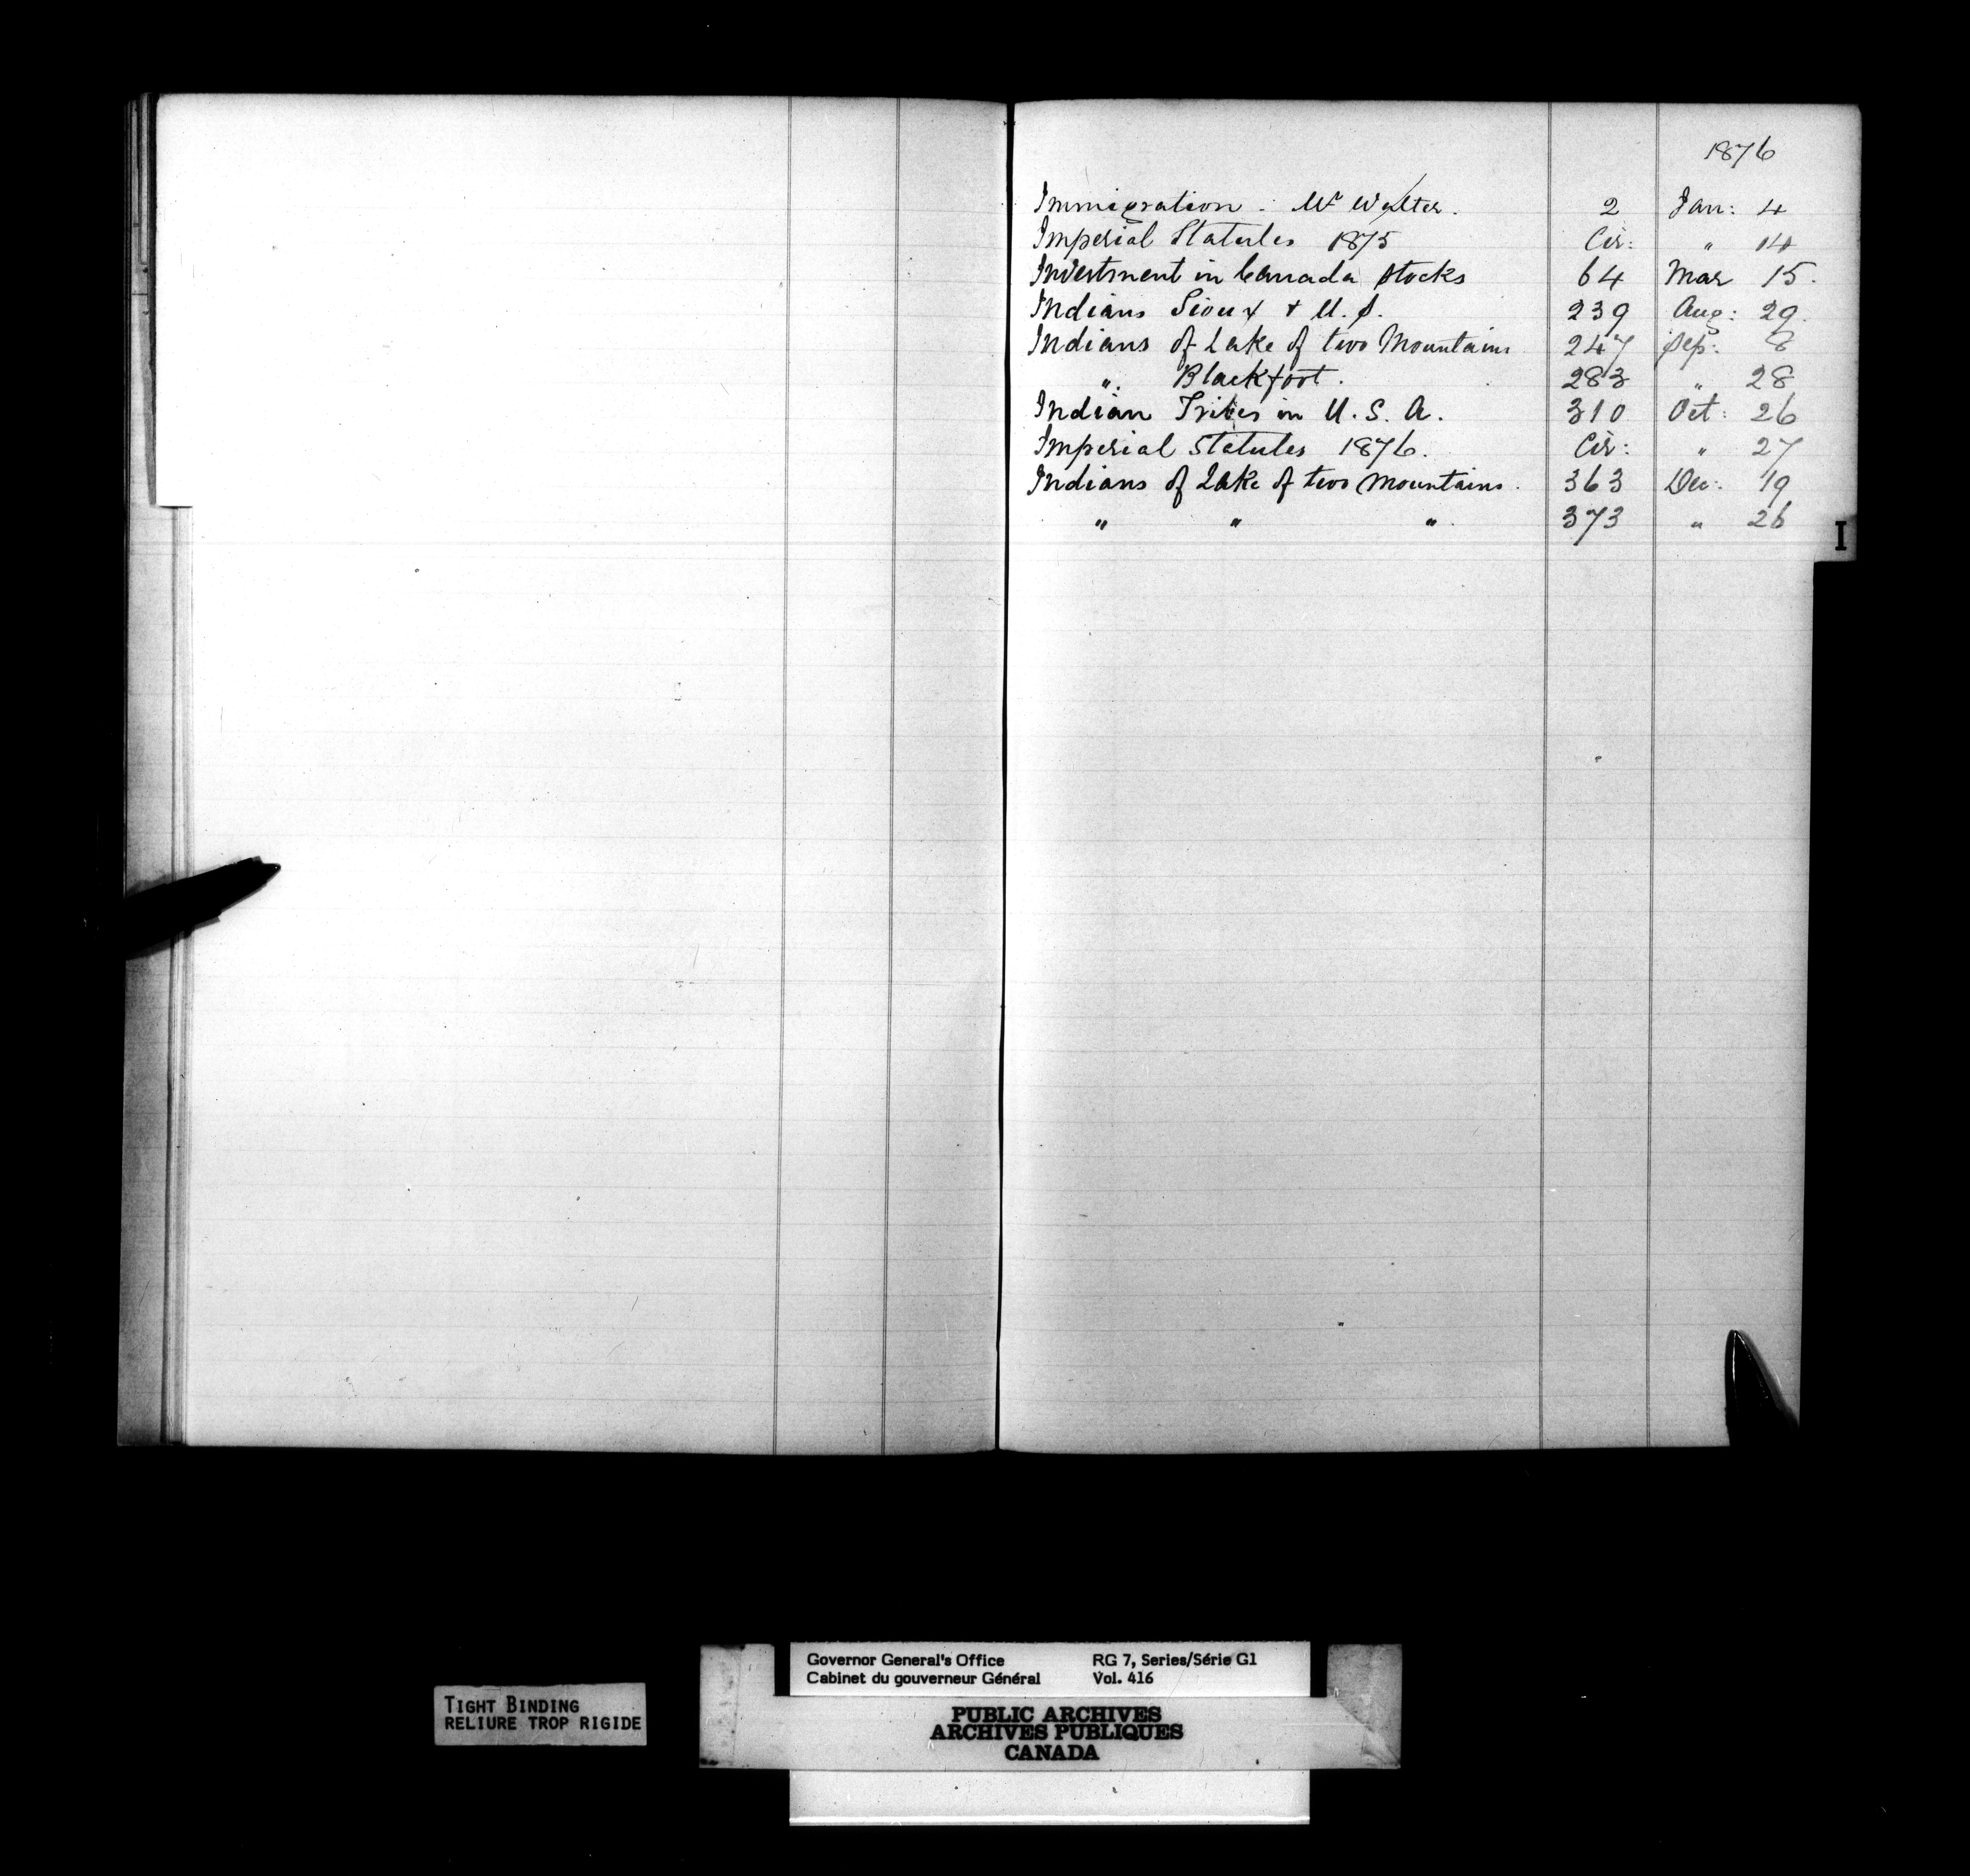 1876
Immigration . Mr Walter . 2 Jan: 4
Imperial Statutes 1875 Cir: " 14
Investment in Canada Stocks 64 Mar 15.
Indians Sioux & U.S. 239 Aug: 29.
Indians of Lake of two Mountains 247 Sep: 8
". Blackfoot. 283 " 28
Indian Tribes in U.S.A. 310 Oct: 26
Imperial Statutes 1876. Cir: " 27
Indians of Lake of two Mountains. 363 Dec: 19
" " ". 373 " 26
I
Governor General's Office RG 7, Series/Série G1
Cabinet du gouverneur Général Vol. 416
TIGHT BINDING
RELIURE TROP RIGIDE
PUBLIC ARCHIVES
ARCHIVES PUBLIQUES
CANADA